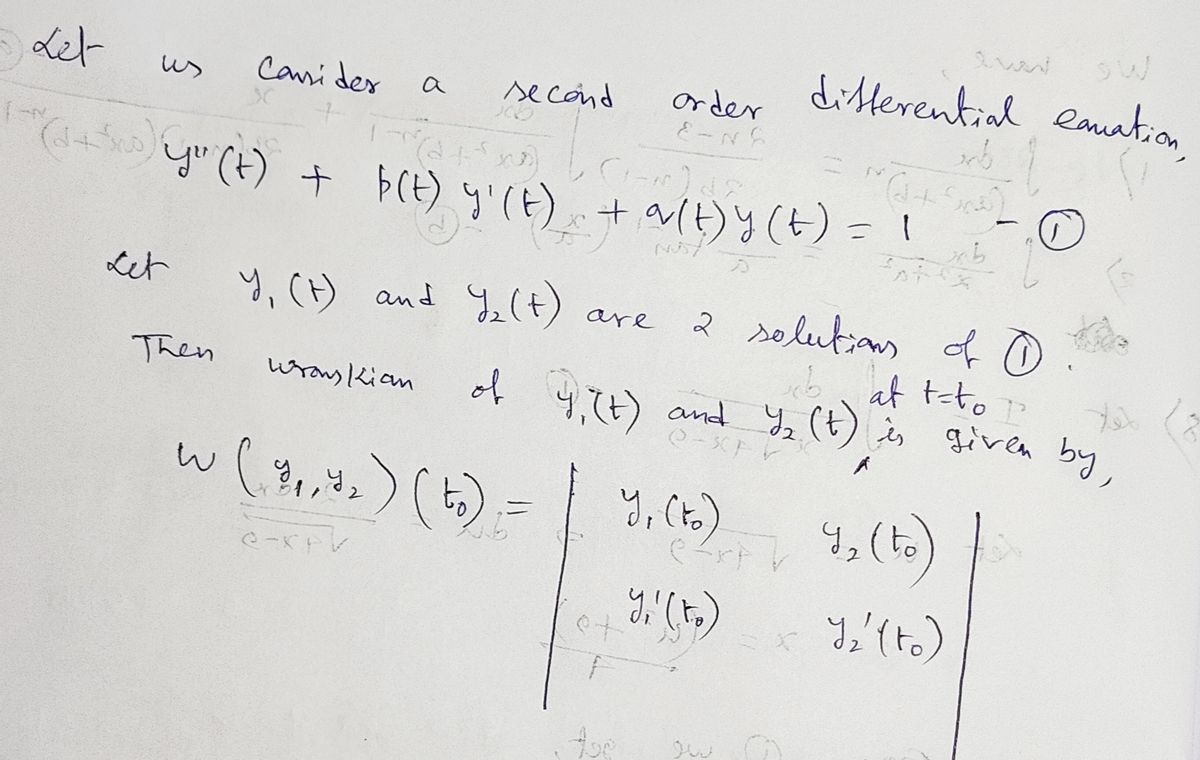 Let us consider a second order differential equation,
y''(t) + p(t) y'(t) + q(t) y(t) = 1 - ①
Let y₁(t) and y₂(t) are 2 solutions of ①.
Then wronskian of y₁(t) and y₂(t) at t=t₀ is given by,
W(y₁,y₂)(t₀) = | y₁(t₀) y₂(t₀) |
| y₁'(t₀) y₂'(t₀) |